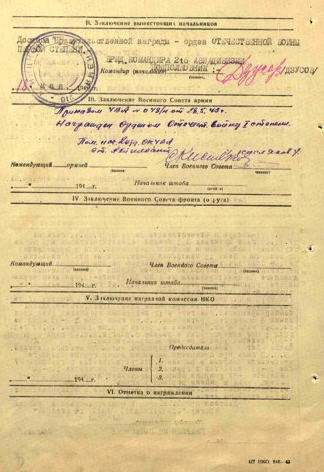 II. Заключение вышестоящих начальников
Достоин Правительственной награды - орден ОТЕЧЕСТВЕННОЙ ВОЙНЫ
ПЕРВОЙ СТЕПЕНИ.
ВРИД. КОМАНДИРА 216 АВИАДИВИЗИИ
ПОДПОЛКОВНИК
/ДЗУСОВ/
Командир (начальник)
III. Заключение Военного Совета армии
Приказом
от 16.5.43г.
Награжден Орденом Отечеств. Войны I степени.
Пом. нач.
Ст. лейтенант
Командующий армией
Член Военного Совета
„ “ 194 г.
Начальник штаба
IV Заключение Военного Совета фронта (округа)
Командующий
Член Военного Совета
„ “ 194 г.
Начальник штаба
V. Заключение наградной комиссии НКО
Председатель
Члены
1.
2.
3.
„ “ 194 г.
VI. Отметка о награждении